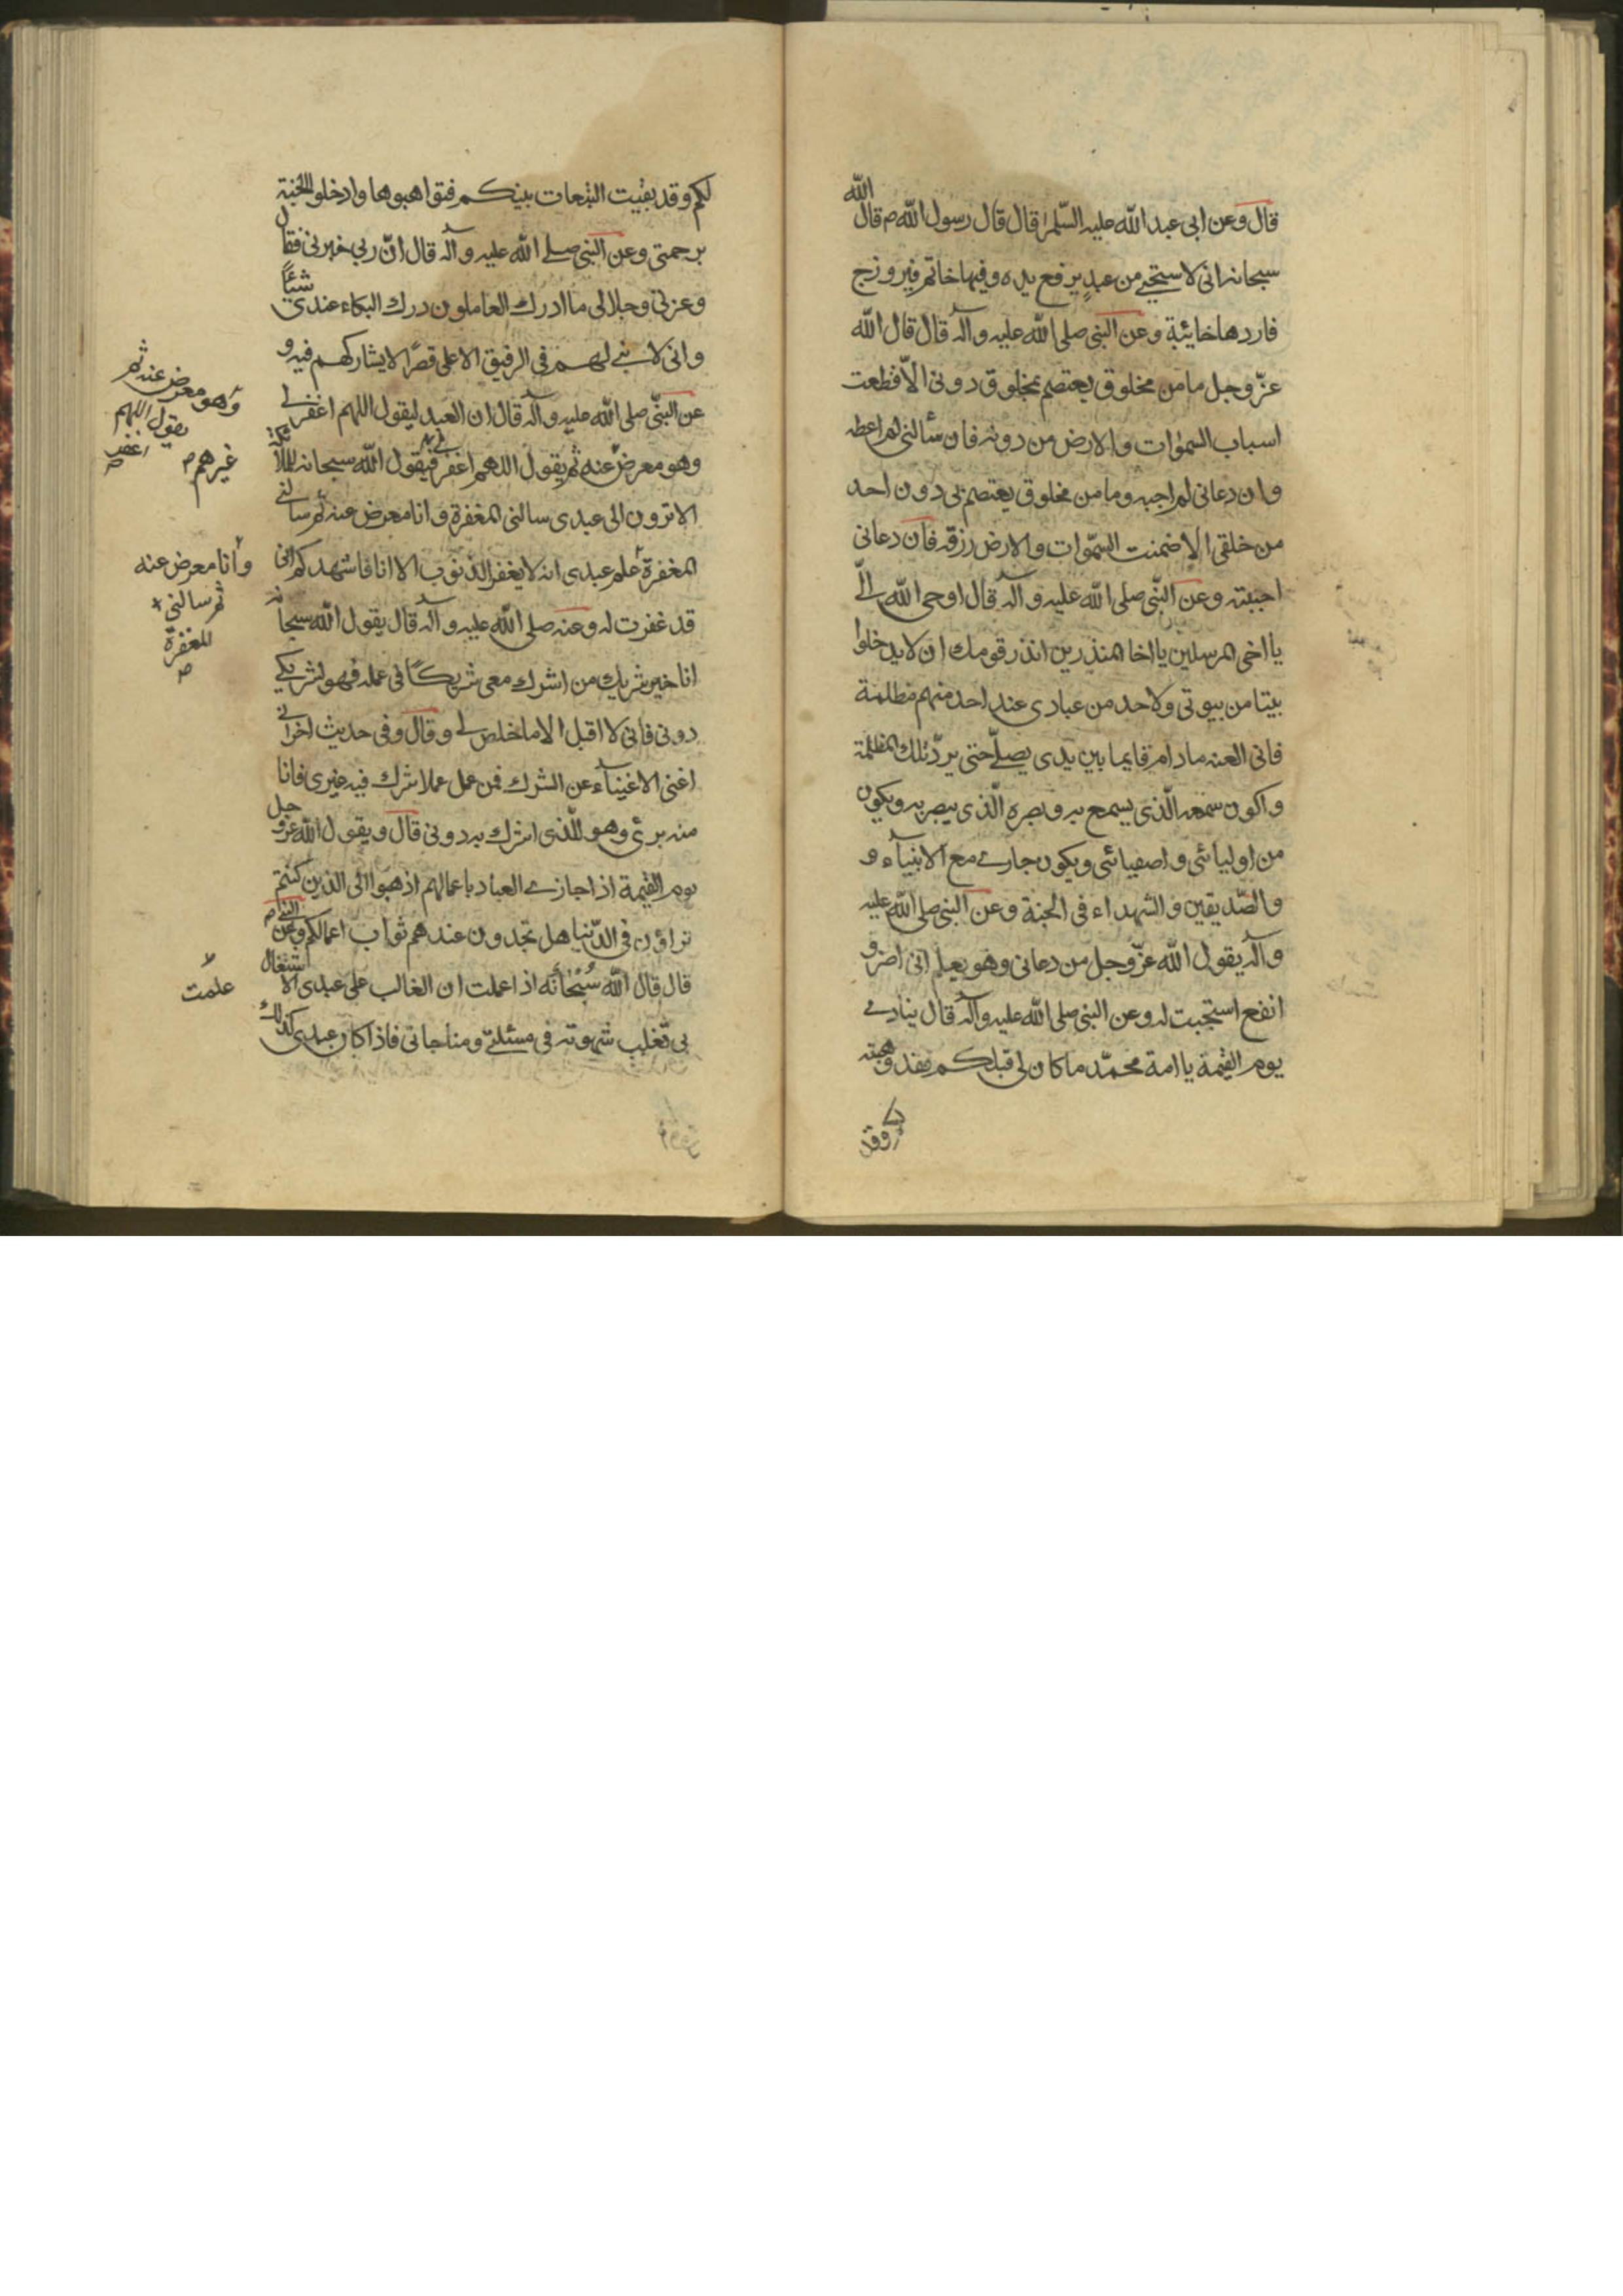 قال وعن ابى عبد الله عليه السلم قال قال رسول الله ص قال الله
سبحانه انى لاستحيى من عبد يرفع يده وفيها خاتم فيروزج
فاردها خائبة وعن النبى صلى الله عليه وآله قال قال الله
عزّ وجل ما من مخلوق يعتصم بمخلوق دونى الّا قطعت
اسباب السموات والارض من دونه فان سألنى لم اعطه
وان دعانى لم اجبه وما من مخلوق يعتصم بى دون احد
من خلقى الا ضمنت السمّوات والارض رزقه فان دعانى
اجبته وعن النّبى صلى الله عليه وآله قال اوحى الله الىّ
يا اخى المرسلين يا اخا المنذرين انذر قومك ان لا يدخلوا
بيتا من بيوتى ولاحد من عبادى عند احد منهم مظلمة
فانى العنه ما دام قايما بين يدى يصلّى حتى يردّ تلك المظلمة
واكون سمعه الّذى يسمع به وبصره الّذى يبصر به ويكون
من اوليائى واصفيائى ويكون جارى مع الانبيآء و
والصّديقين والشهداء فى الجنة وعن النبى صلى الله عليه
وآله يقول الله عزّ وجل من دعانى وهو يعلم انى اضر و
انفع استجبت له وعن النبى صلى الله عليه وآله قال ينادى
يوم القيمة يا امة محمّد ما كان لى قبلكم فقد وهبته
وقد
لكم وقد بقيت التبعات بينكم فتواهبوها وادخلو الجنة
برحمتى وعن النبى صلى الله عليه وآله قال انّ ربى خبرنى فقال
وعزتى وجلالى ما ادرك العاملون درك البكاء عندى شيئًا
وانى لابنى لهم فى الرفيق الاعلى قصرًا لا يشاركهم فيه و
غيرهم ص
عن النبىّ صلى الله عليه وآله قال ان العبد ليقول اللهم اغفر لى
وهو معرض عنه ثم يقول اللهم اغفر لى فيقول الله سبحانه للملائكة
وهو معرض عنه ثم
يقول اللهم
اغفر
الا ترون الى عبدى سالنى المغفرة وانا معرض عنه ثم سالنى
المغفرة علم عبدى انه لا يغفر الذنوب الا انا فاشهدكم انى
وأنا معرض عنه
ثم سالنى
المغفرة
ص
قد غفرت له وعنه صلى الله عليه وآله قال يقول الله سبحانه
انا خير شريك من اشرك معى شريكًا فى عمله فهو لشريكى
دونى فانى لا اقبل الا ما خلص لى وقال وفى حديث اخر انى
اغنى الاغنيآء عن الشرك فمن عمل عملا اشرك فيه غيرى فانا
منه برئ وهو للّذى اشرك به دونى قال ويقول الله عزّ وجل
يوم القيمة اذا جازى العباد باعمالهم اذهبوا الى الذين كنتم
تراؤن فى الدّنيا هل تجدون عندهم ثواب اعمالكم وعن النبى ص
قال قال الله سُبْحَانَه اذا عملت ان الغالب على عبدى الاشتغال
علمت
بى نقلت شهوته فى مسئلتى ومناجاتى فاذا كان عبدى كذلك